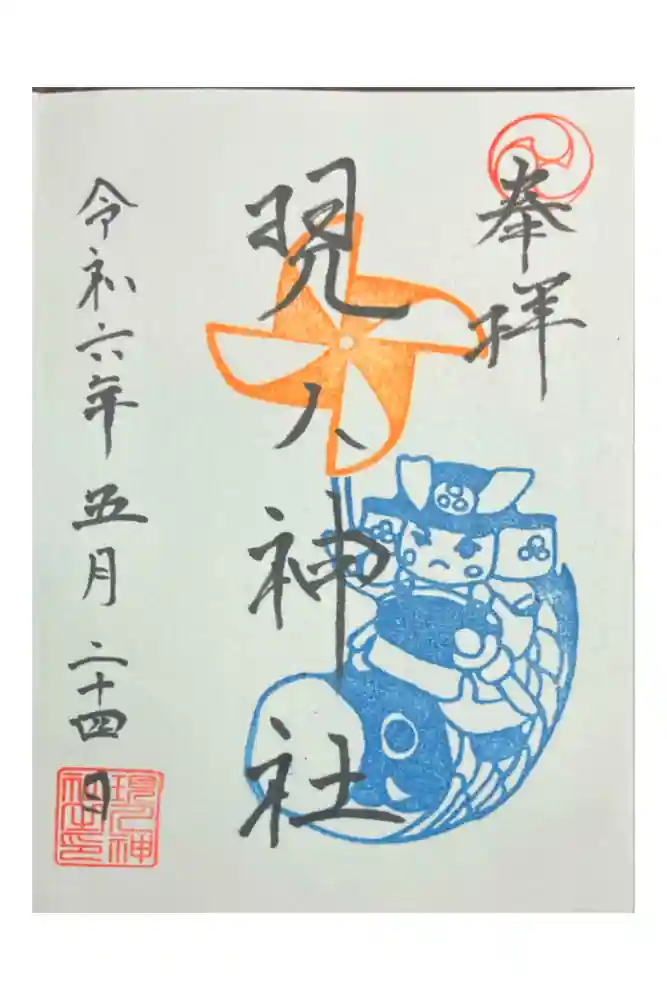 奉拝
現人神社
令和六年五月二十四日
現人神